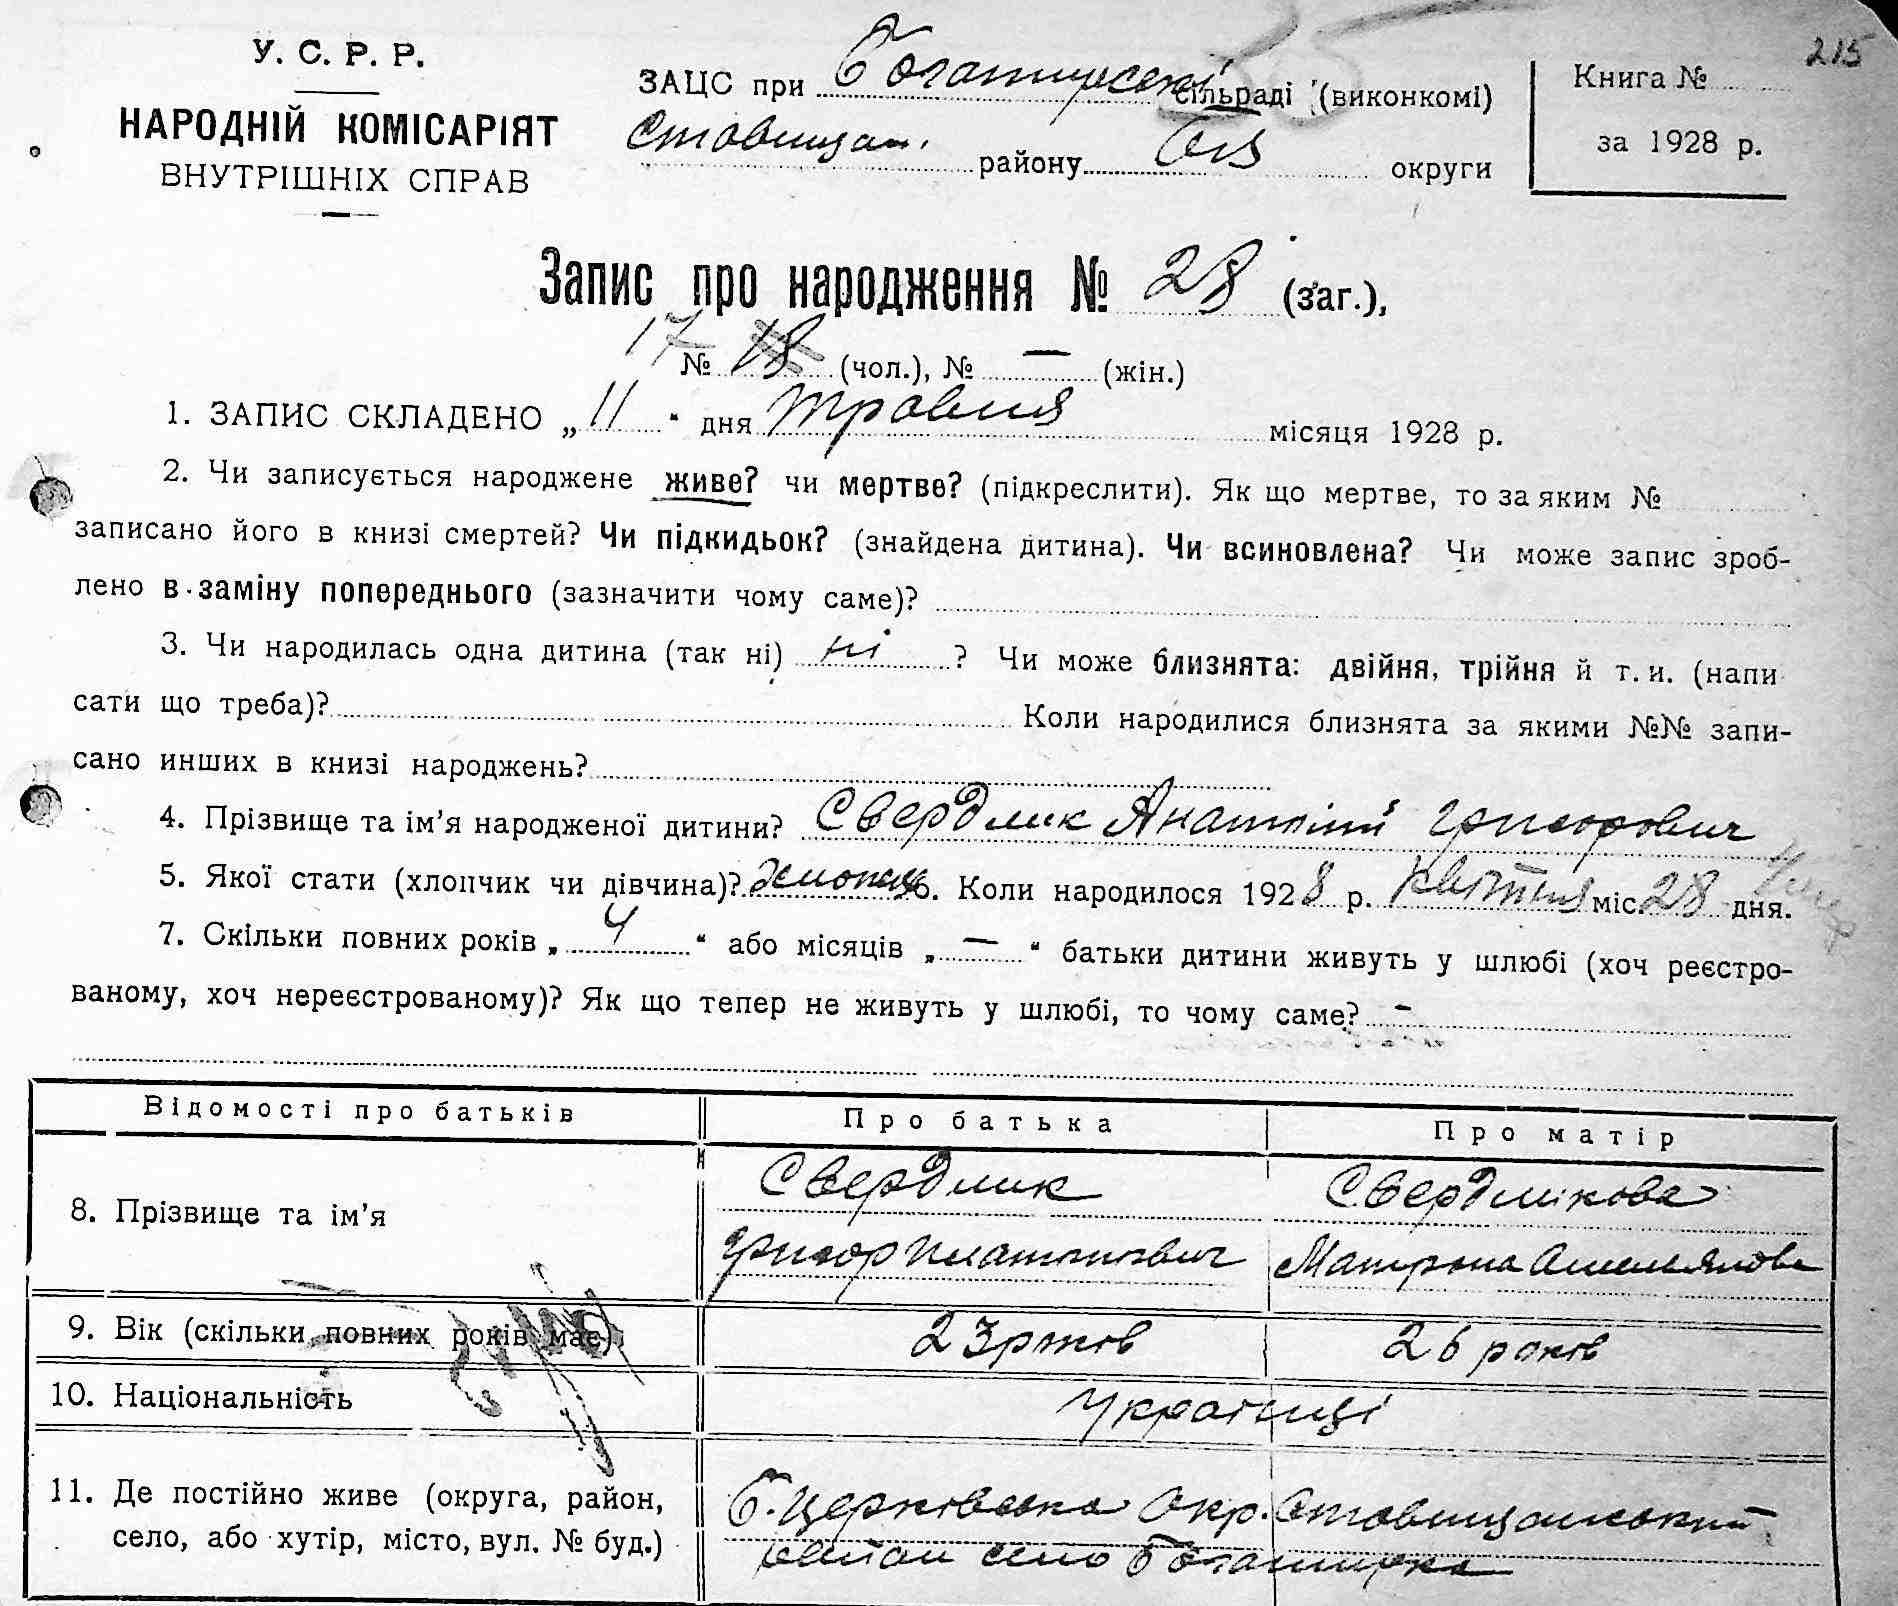 215
У. С. Р. Р.
НАРОДНІЙ КОМІСАРІЯТ
ВНУТРІШНІХ СПРАВ
ЗАЦС при Богатирській сільраді (виконкомі)
Ставищан. району БЦ округи
Книга №
за 1928 р.
Запис про народження № 28 (заг.),
17 № 18 (чол.), № — (жін.)
1. ЗАПИС СКЛАДЕНО „11“ дня травня місяця 1928 р.
2. Чи записується народжене живе? чи мертве? (підкреслити). Як що мертве, то за яким №
записано його в книзі смертей? Чи підкидьок? (знайдена дитина). Чи всиновлена? Чи може запис зроб-
лено в заміну попереднього (зазначити чому саме)?
3. Чи народилась одна дитина (так ні) ні ? Чи може близнята: двійня, трійня й т. и. (напи
сати що треба)? Коли народилися близнята за якими №№ запи-
сано инших в книзі народжень?
4. Прізвище та ім’я народженої дитини? Свердлик Анатолій Григорович
5. Якої стати (хлопчик чи дівчина)? хлопець 6. Коли народилося 1928 р. квітня міс. 28 дня.
7. Скільки повних років „ 4 “ або місяців „ — “ батьки дитини живуть у шлюбі (хоч реєстро-
ваному, хоч нереєстрованому)? Як що тепер не живуть у шлюбі, то чому саме? -
Відомості про батьків Про батька Про матір
8. Прізвище та ім’я Свердлик Свердликова
Григор Платонович Матрона
9. Вік (скільки повних років має) 23 років 26 років
10. Національність Українці
11. Де постійно живе (округа, район, Б. Церківська Окр. Ставищанський
село, або хутір, місто, вул. № буд.) район село Богатирка